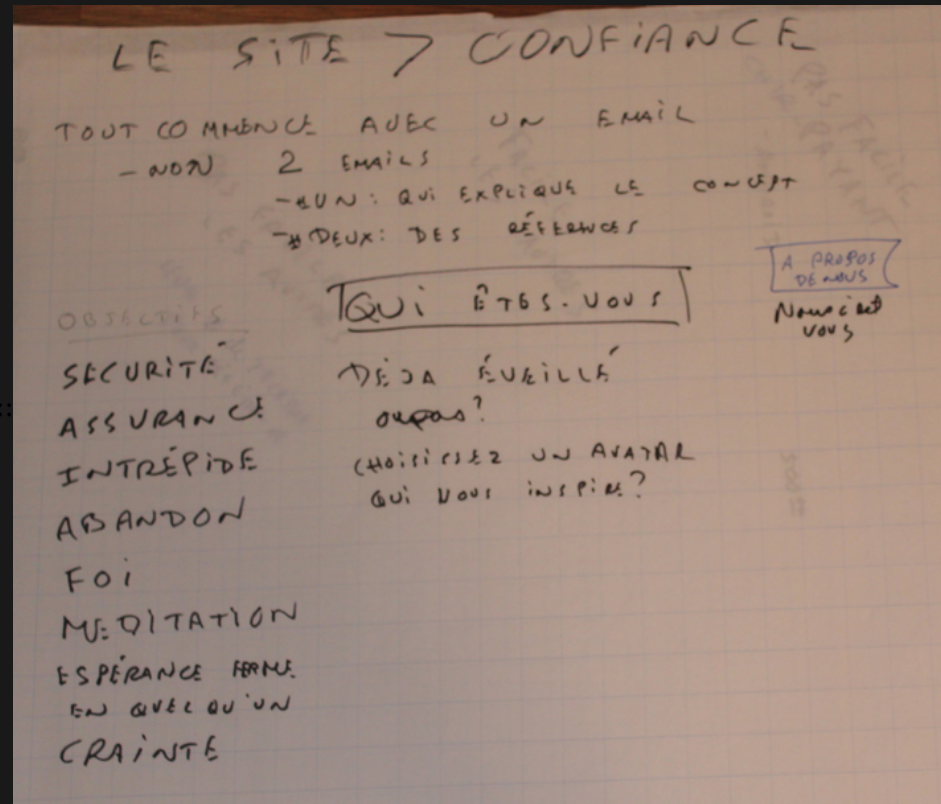 LE SITE > CONFIANCE
TOUT COMMENCE AVEC UN EMAIL
- NON 2 EMAILS
- UN : QUI EXPLIQUE LE CONCEPT
- DEUX : DES RÉFÉRENCES
A PROPOS
DE NOUS
Nous c'est
vous
QUI ÊTES-VOUS
OBJECTIFS
SÉCURITÉ
ASSURANCE
INTRÉPIDE
ABANDON
FOI
MEDITATION
ESPÉRANCE FERME
EN QUELQU'UN
CRAINTE
DÉJA ÉVEILLÉ
ou pas?
CHOISISSEZ UN AVATAR
QUI VOUS INSPIRE?